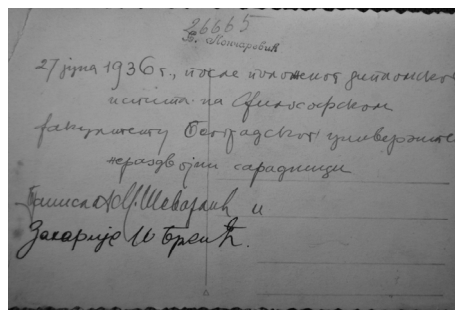 26665
В. Лончаревић
27 јуна 1936 г., после положеног дипломског
испита на Философском
факултету Београдског универзитета
нераздвојни сарадници
Томислав М. Шеварлић и
Захарије М. Бркић.